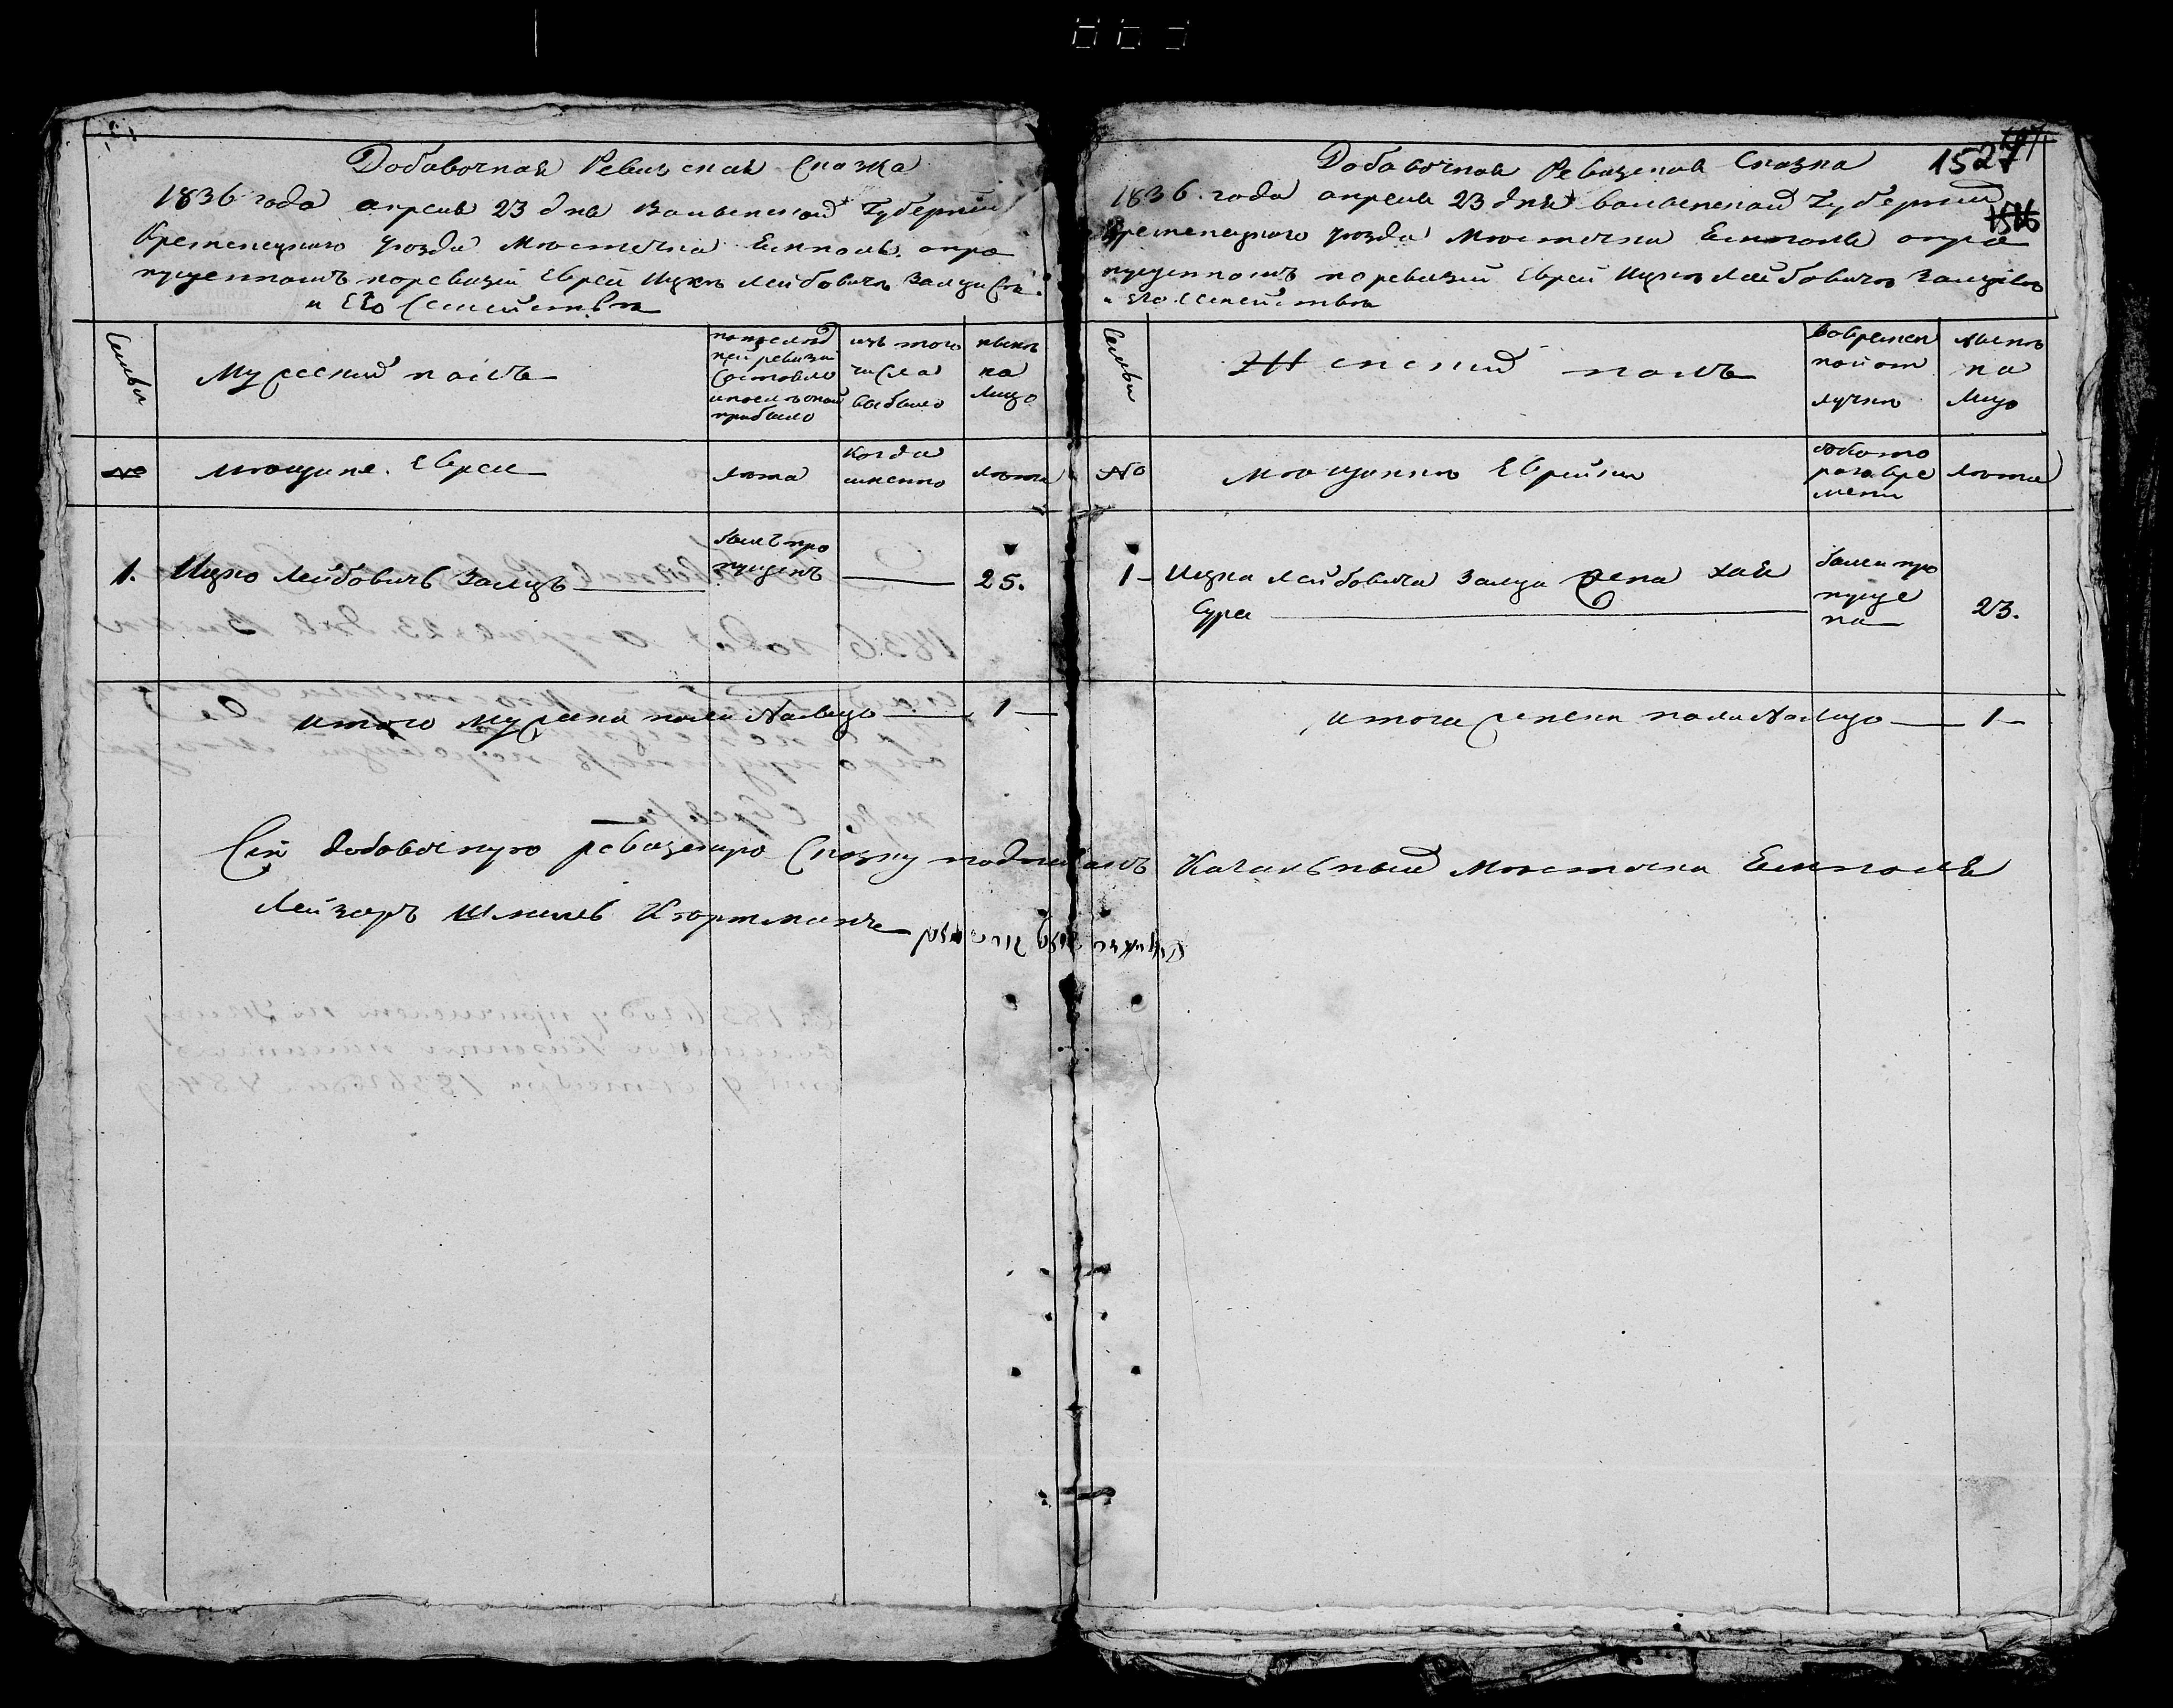 Добавочная Ревизская Сказка
1836 года апреля 23 дня Волынской Губернии
Кременецкого уезда Местечка Ямполя о про
пущенномъ по ревизіи Еврей Ицко Лейбовичъ Залцъ
и Его Семействе
Семьи
Мужеский полъ
по послед
ней ревизіи
состояло
и после оной
прибыло
изъ того
числа
выбыло
ныне
на
лицо
№
мещане Евреи
лета
когда
именно
лета
1. Ицко Лейбовичъ Залцъ
былъ про
пущенъ
25.
итого мужеска пола налицо 1
Добавочная Ревизская Сказка
1527
1836 года апреля 23 дня Волынской Губернии
Кременецкого уезда Местечка Ямполя о про
пущенномъ по ревизіи Еврей Ицко Лейбовичъ Залцъ
и Его Семействе
Семьи
Женский полъ
во времен
ной от
лучке
ныне
на
лицо
№
мещанки Еврейки
съ кото
рого вре
мени
лета
1 Ицка Лейбовича Залца жена Хая
Сура
была про
пуще
на
23.
итого женска пола налицо 1
Сію добавочную ревизскую Сказку подписалъ Кагальный Местечка Ямполя
Лейзоръ Шмулев Кортманъ